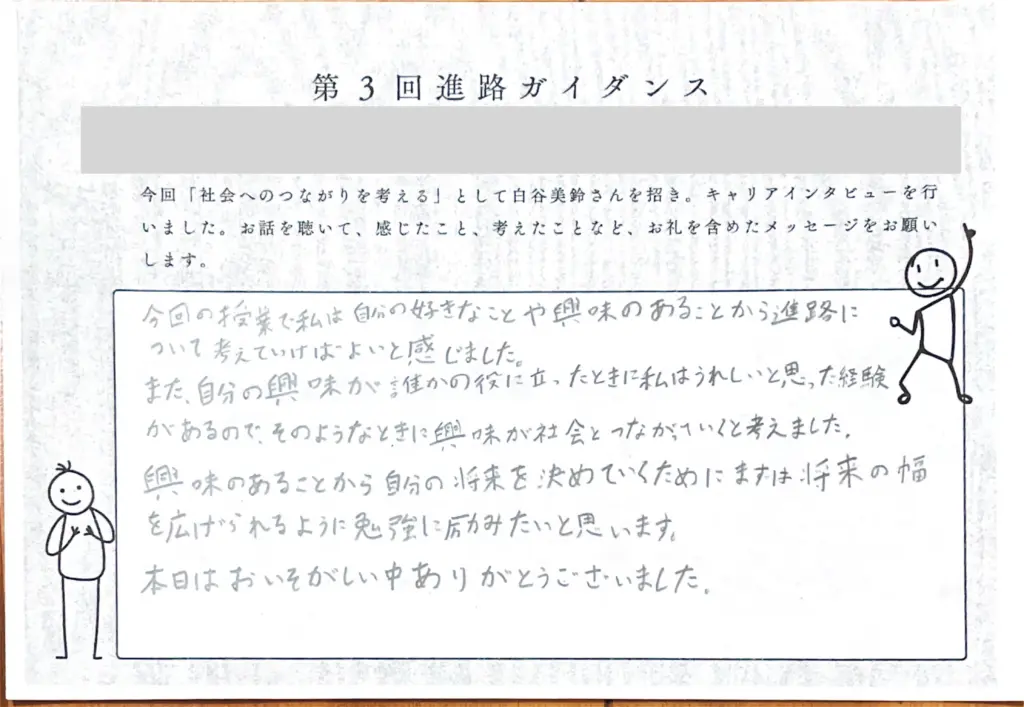 第3回進路ガイダンス
今回「社会へのつながりを考える」として白谷美鈴さんを招き。キャリアインタビューを行
いました。お話を聴いて、感じたこと、考えたことなど、お礼を含めたメッセージをお願い
します。
今回の授業で私は自分の好きなことや興味のあることから進路に
ついて考えていけばよいと感じました。
また、自分の興味が誰かの役に立ったときに私はうれしいと思った経験
があるので、そのようなときに興味が社会とつながっていくと考えました。
興味のあることから自分の将来を決めていくためにまずは将来の幅
を広げられるように勉強に励みたいと思います。
本日はおいそがしい中ありがとうございました。